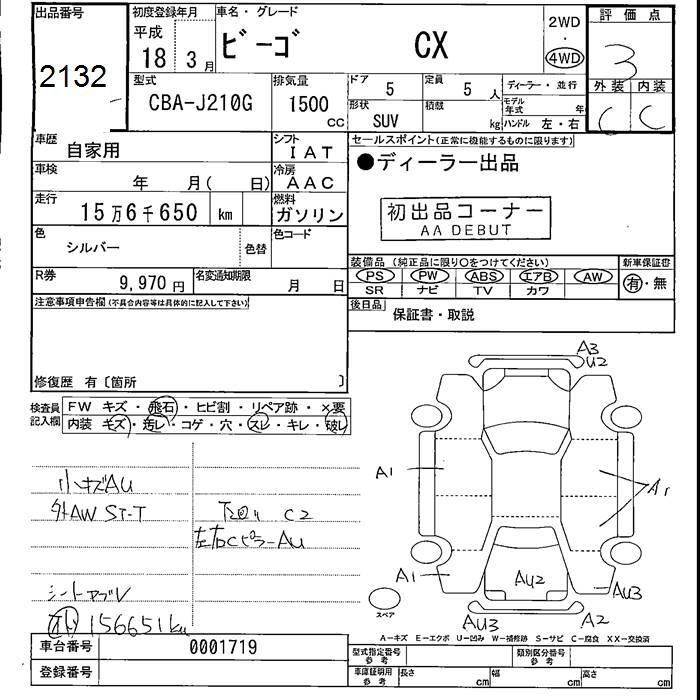 出品番号
2132
初度登録年月
平成
18 3月
車名・グレード
ビーゴ CX
2WD
・
4WD
評価点
3
外装 内装
C C
型式
CBA-J210G
排気量
1500
CC
ドア
5
定員
5 人
ディーラー・並行
形状
SUV
積載
kg
モデル年式 年
ハンドル 左・右
車歴
自家用
シフト
IAT
車検
年 月( 日)
冷房
AAC
走行
15万6千650 km
燃料
ガソリン
色
シルバー
色替
色コード
R券
9,970 円
名変通知期限
月 日
セールスポイント(正常に機能するものに限ります)
●ディーラー出品
初出品コーナー
AA DEBUT
装備品(純正品に限り○をつけてください)
新車保証書
PS PW ABS エアB AW
SR ナビ TV カワ
有・無
後日品
保証書・取説
注意事項申告欄(不具合内容等は具体的に記入して下さい)
修復歴 有〔箇所 〕
検査員
記入欄
FW キズ・飛石・ヒビ割・リペア跡・×要
内装 キズ・汚レ・コゲ・穴・スレ・キレ・破レ
小キズAU
外AW ST-T
下廻り C2
左右Cピラ-AU
シートヤブレ
156651km
A3
U2
A1
A1
A1
AU2
AU3
AU3
A2
スペア
A-キズ E-エクボ U-凹み W-補修跡 S-サビ C-腐食 XX-交換済
車台番号
0001719
登録番号
型式指定番号
参考
類別区分番号
参考
車庫証明用
参考
長さ cm
幅 cm
高さ cm